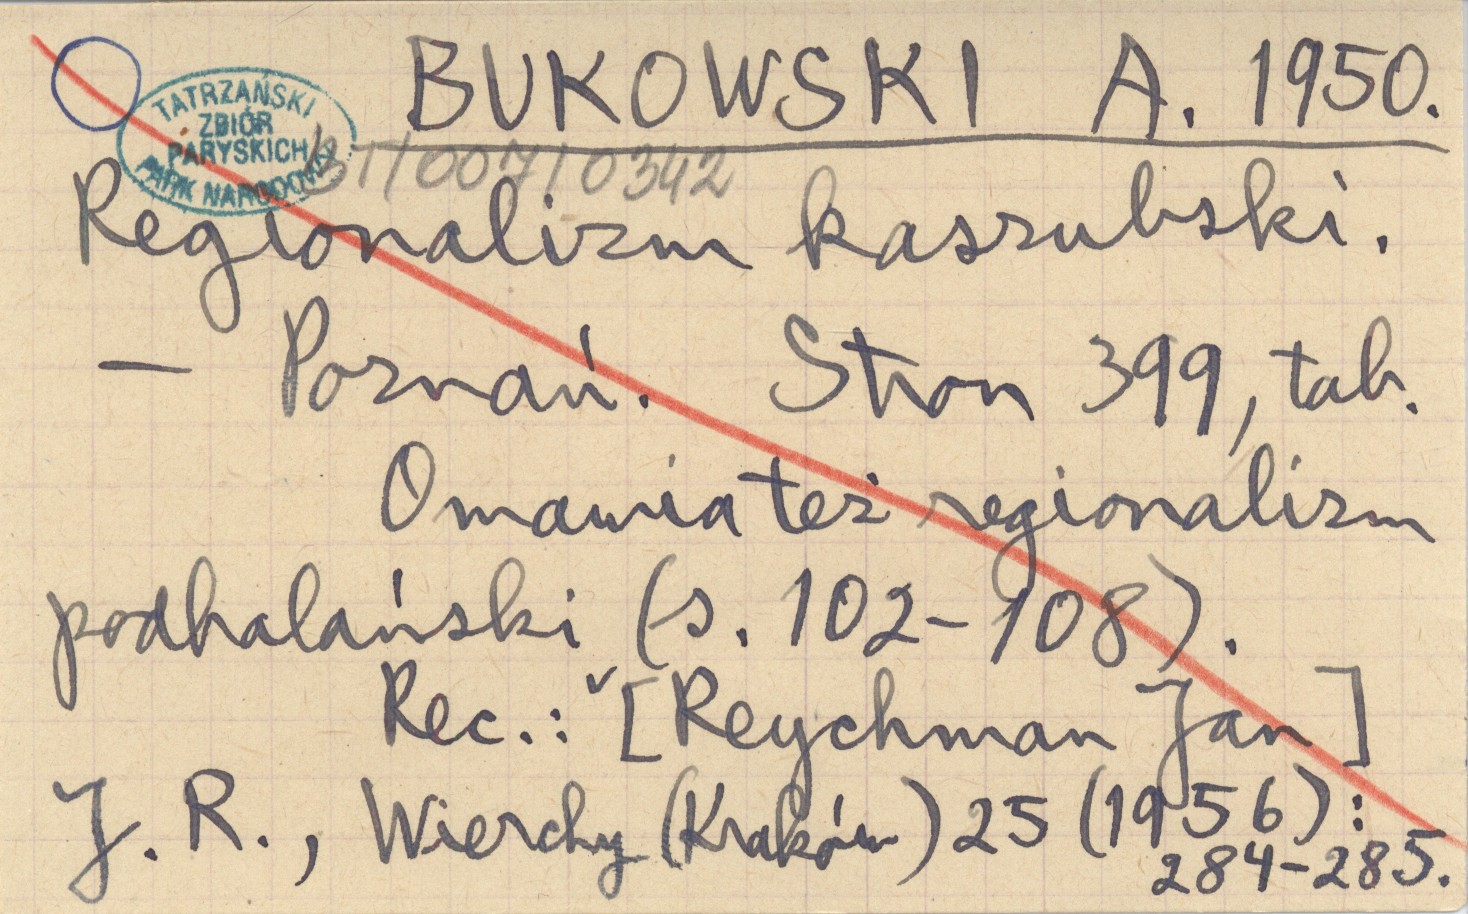 BUKOWSKI A. 1950.
TATRZAŃSKI
ZBIÓR
PARYSKICH
PARK NARODOWY
BT/007/0342
Regionalizm kaszubski.
— Poznań. Stron 399, tab.
Omawia też regionalizm
podhalański (s. 102-108).
Rec.: [Reychman Jan]
J. R., Wierchy (Kraków) 25 (1956):
284-285.